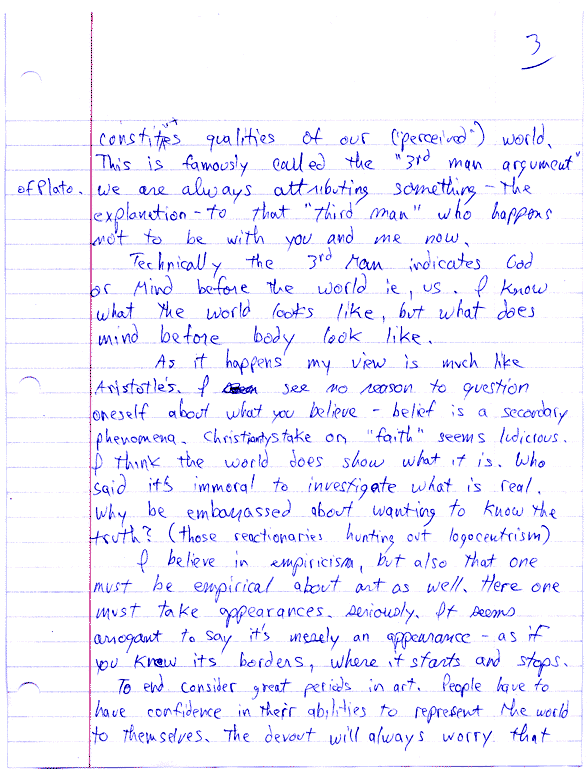 3
constitutes qualities of our ("perceived") world.
This is famously called the "3rd man argument"
of Plato. we are always attributing something - the
explanation - to that "third man" who happens
not to be with you and me now.
Technically the 3rd Man indicates God
or Mind before the world ie, us. I know
what the world looks like, but what does
mind before body look like.
As it happens my view is much like
Aristotle's. I see no reason to question
oneself about what you believe - belief is a secondary
phenomena. Christiantys take on "faith" seems ludicrous.
I think the world does show what it is. Who
said it's immoral to investigate what is real.
Why be embarrassed about wanting to know the
truth? (those reactionaries hunting out logocentrism)
I believe in empiricism, but also that one
must be empirical about art as well. Here one
must take appearances. seriously. It seems
arrogant to say it's merely an appearance - as if
you knew its borders, where it starts and stops.
To end consider great periods in art. People have to
have confidence in their abilities to represent the world
to themselves. The devout will always worry that